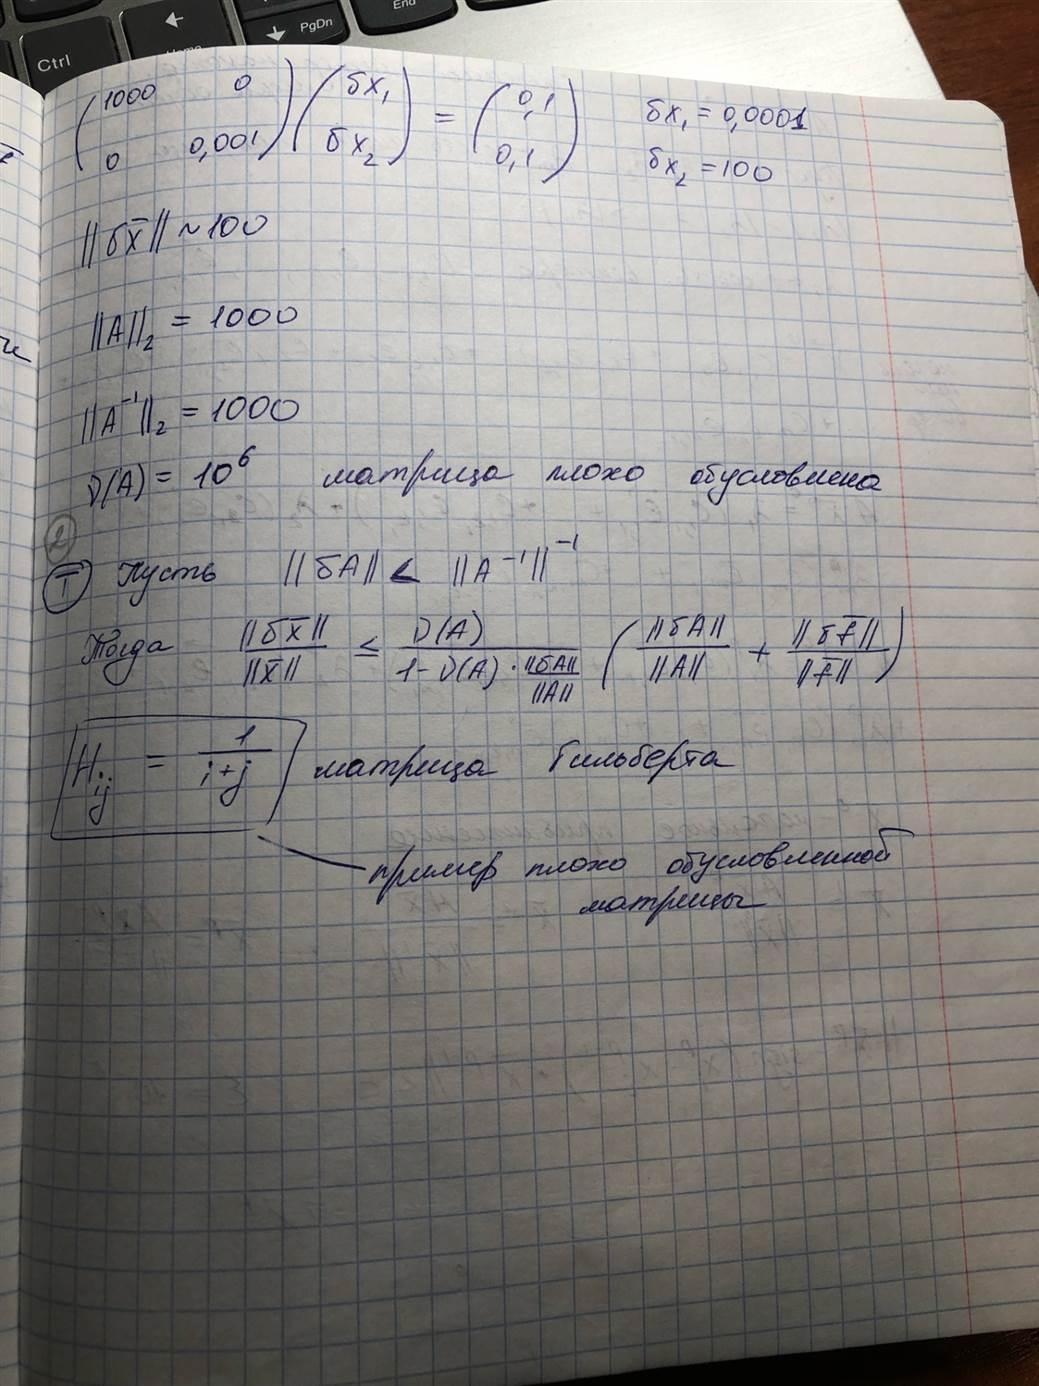 Ctrl
Home
PgDn
End
(1000 0; 0 0,001) (δx₁; δx₂) = (0,1; 0,1) δx₁ = 0,0001
δx₂ = 100
||δx̄|| ~ 100
||A||₂ = 1000
||A⁻¹||₂ = 1000
ν(A) = 10⁶ матрица плохо обусловлена
2
Т Пусть ||δA|| < ||A⁻¹||⁻¹
Тогда ||δx̄||/||x̄|| ≤ ν(A)/(1-ν(A)·||δA||/||A||) (||δA||/||A|| + ||δf̄||/||f̄||)
H_ij = 1/(i+j) матрица Гильберта
пример плохо обусловленной
матрицы